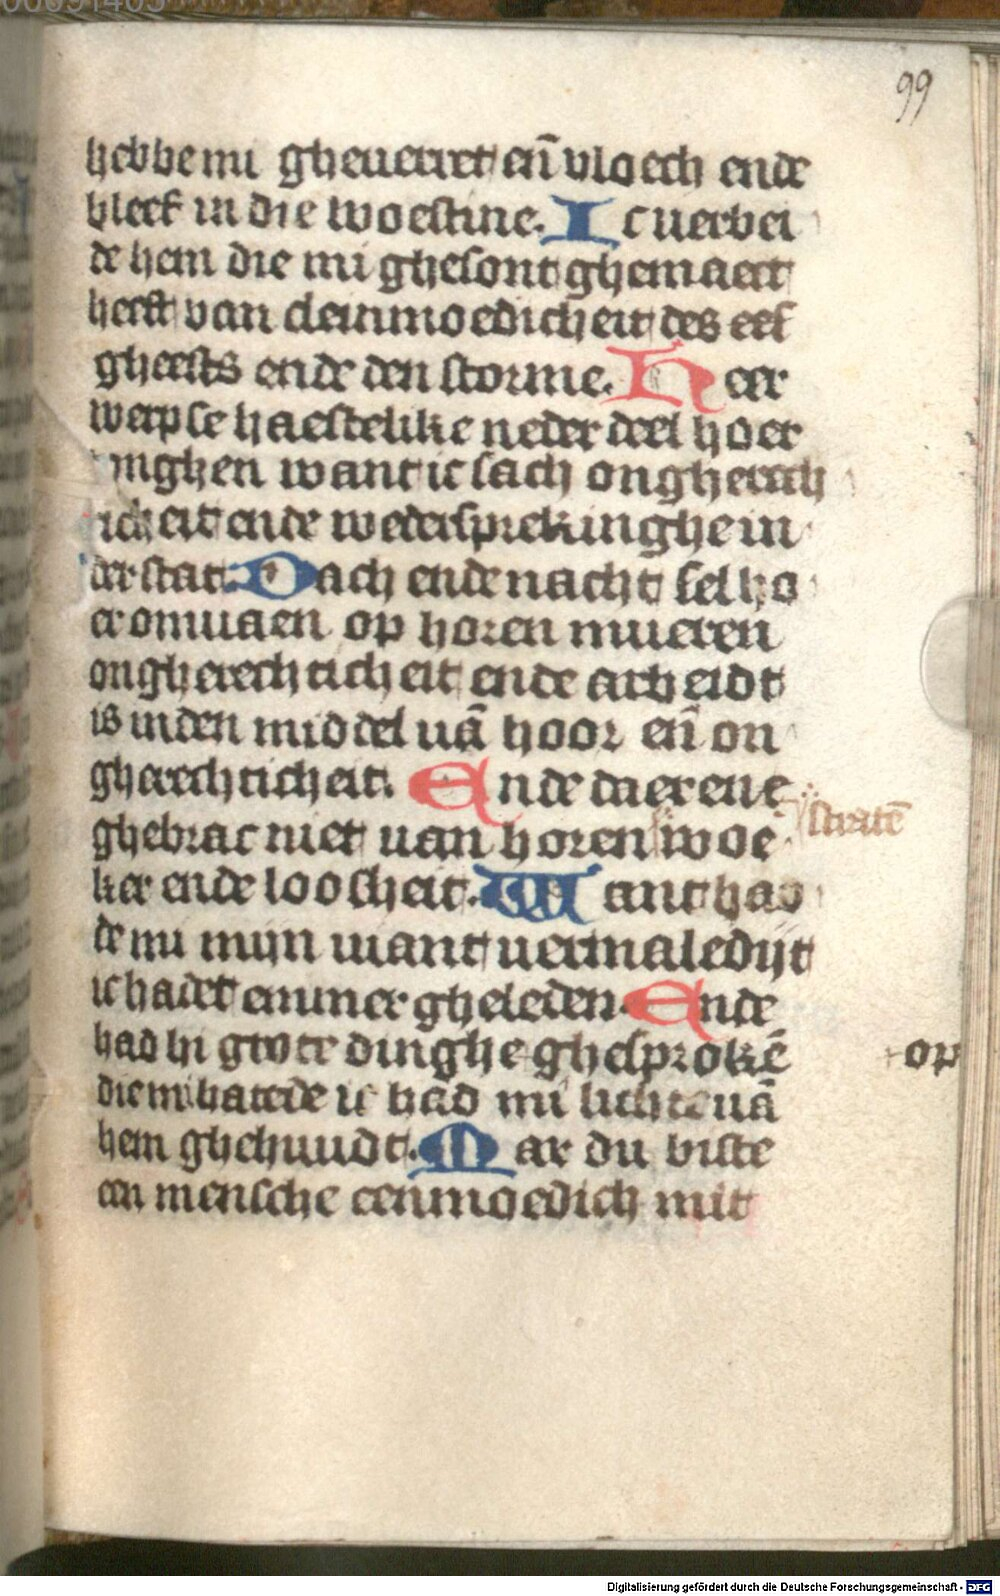 99
hebbe mi gheuerret en̄ vloech ende
bleef in die woestine. Ic uerbei
de hem die mi ghesont ghemaect
heeft van cleinmoedicheit des
gheests ende den storme. Heer
werp se haestelike neder deel hoer
tonghen want ic sach ongherech
ticheit ende wedersprekinghe in
der stat. Dach ende nacht sel ho
er omuaen op horen mueren
ongherechticheit ende arbeidt
is inden middel uā hoor en̄ on
gherechticheit. Ende daer en e
ghebrac niet uan horen woe
stratē
ker ende loosheit. Want had
de mi mijn uiant uermaledijt
ic hadet emmer gheleden. Ende
had hi grote dinghe ghesprokē
op
die mi hatede ic had mi lichte uā
hem ghehuudt. Mar du biste
een mensche eenmoedich mit
Digitalisierung gefördert durch die Deutsche Forschungsgemeinschaft - DFG